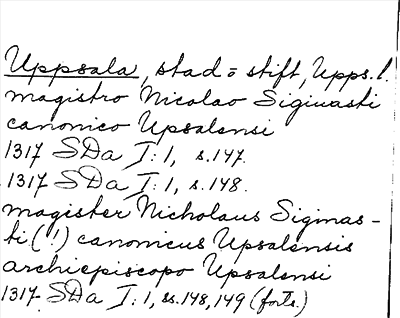 Uppsala, stad o stift, Upps. l.
magistro Nicolao Sigiuasti
canonico Upsalensi
1317 SDa I: 1, s. 147.
1317 SDa I: 1, s. 148.
magister Nicholaus Sigmas-
ti (!) canonicus Upsalensis
archiepiscopo Upsalensi
1317 SDa I: 1, ss. 148, 149 (forts.)